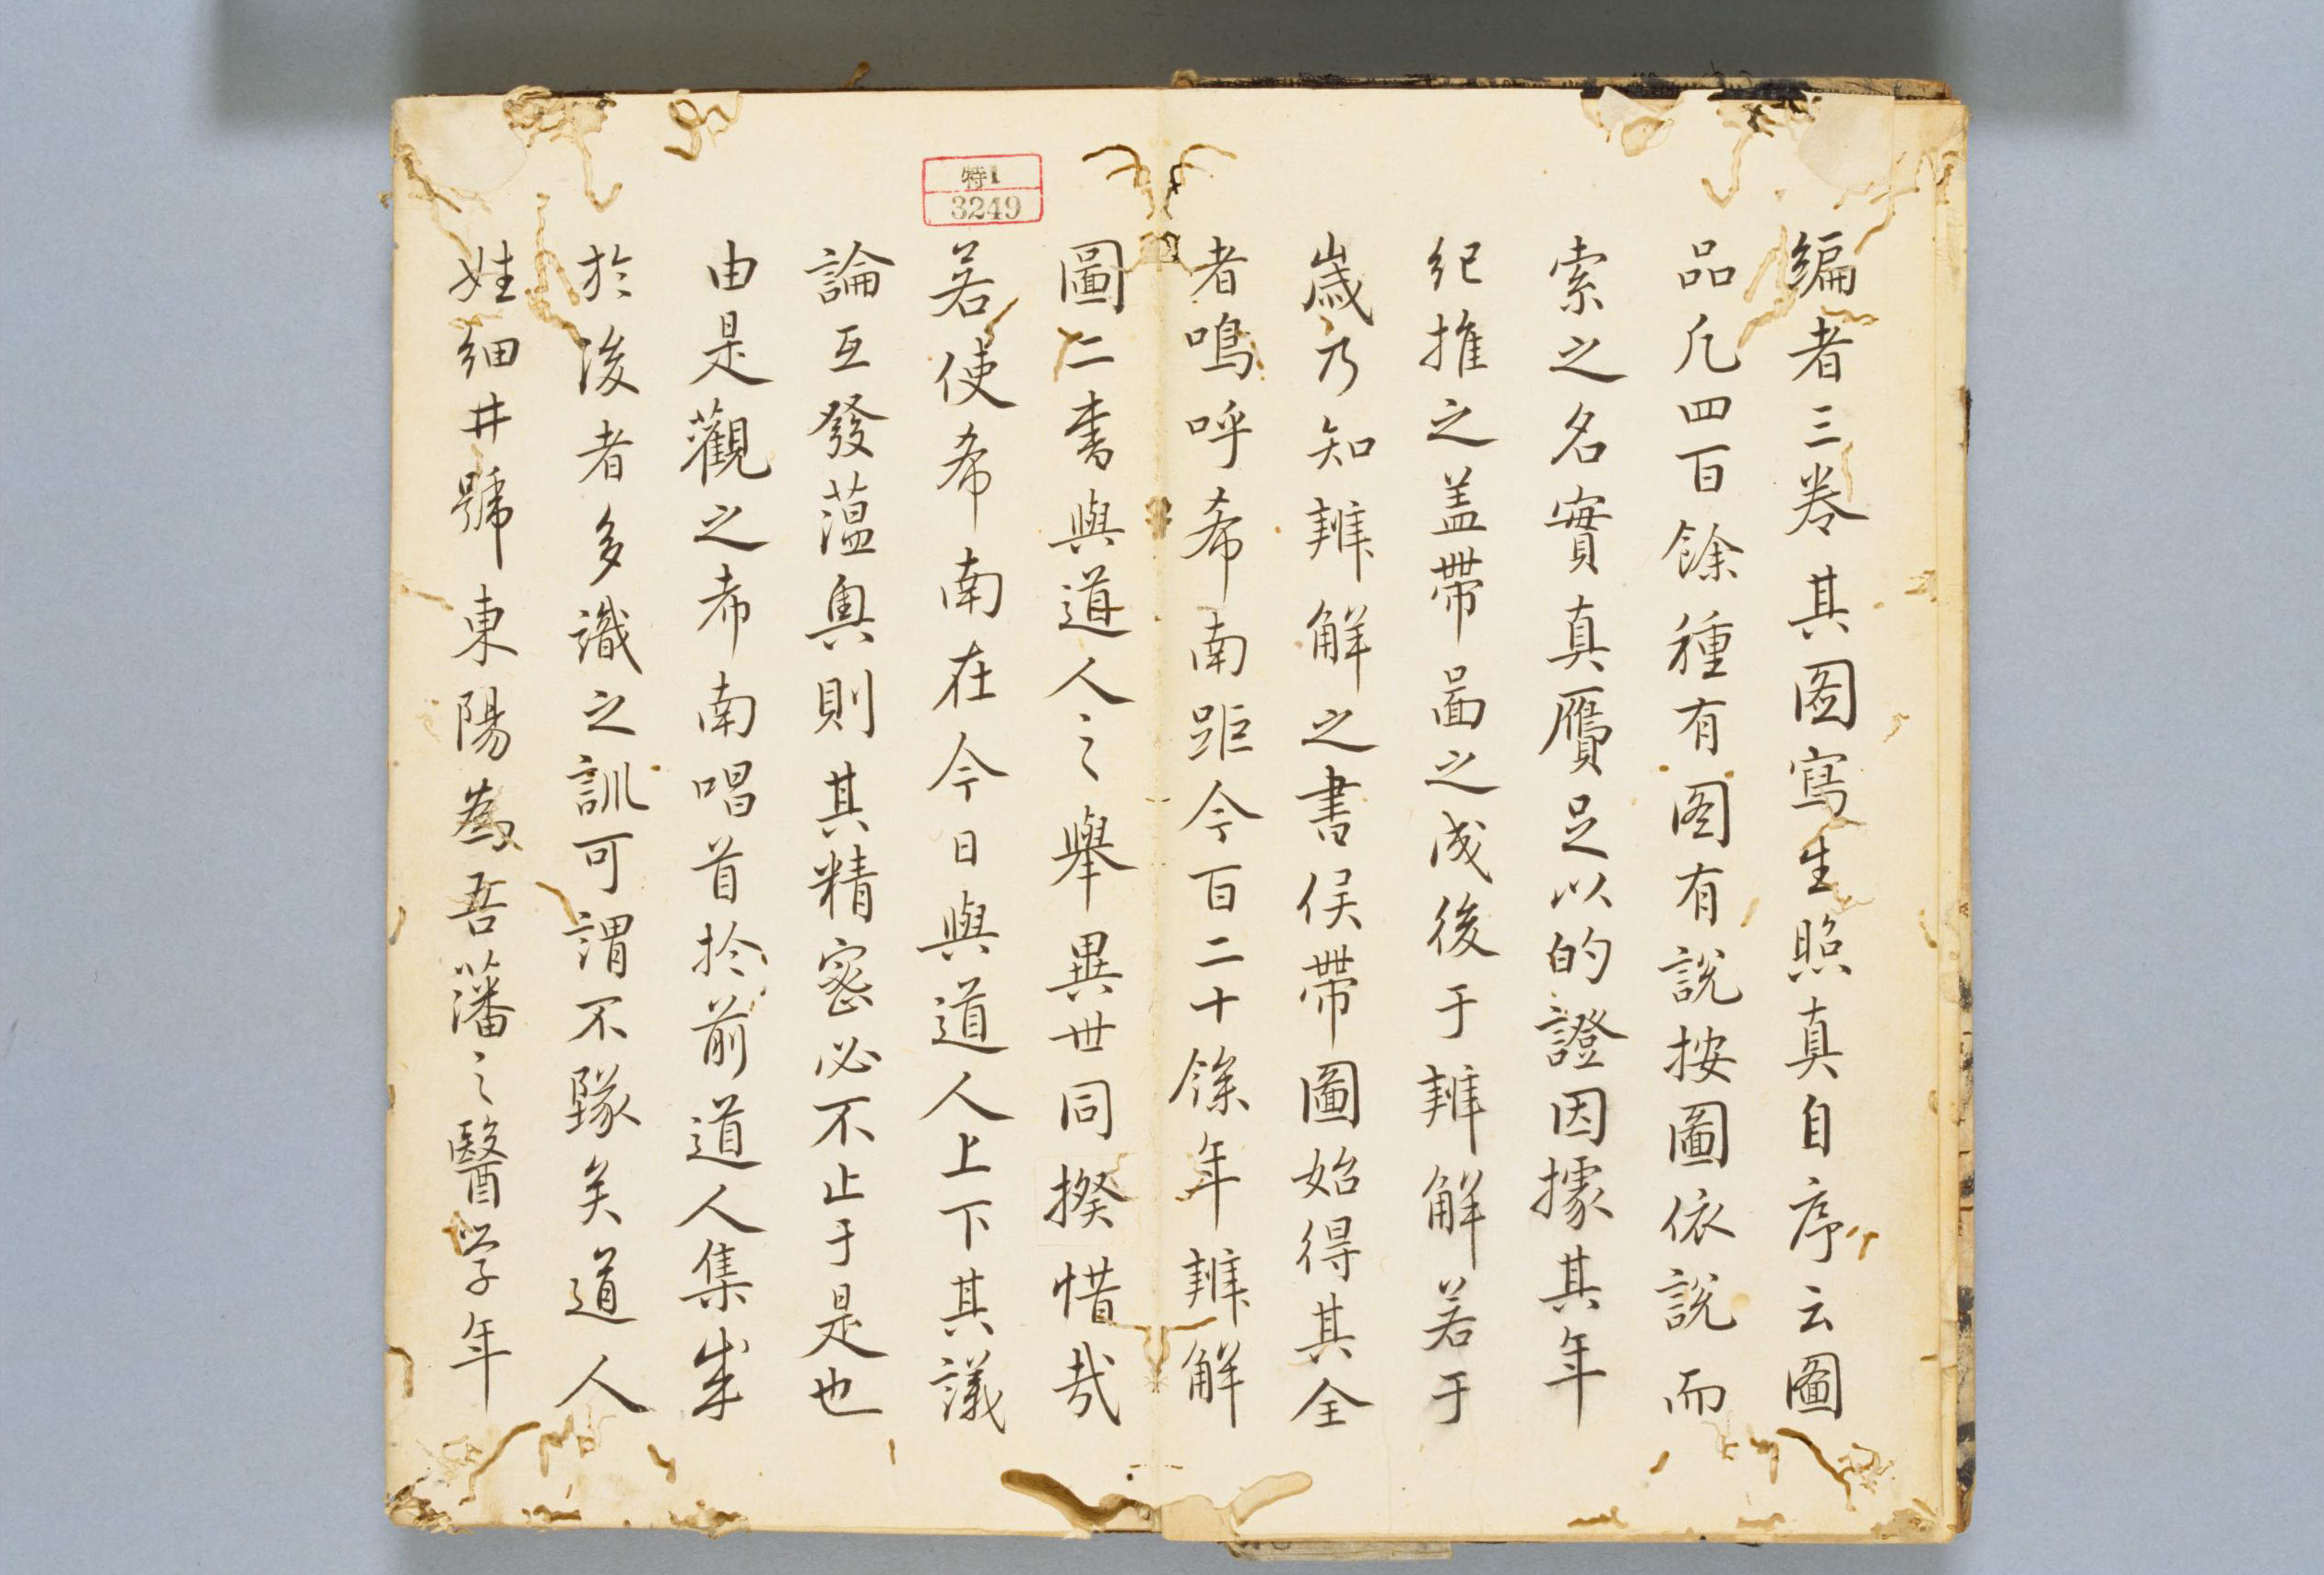 編者三卷其图寫生照真自序云圖
品凡四百餘種有图有說按圖依說而
索之名實真贋足以的證因據其年
紀推之盖帶啚之成後于辨解若于
歲乃知辨解之書俟帶圖始得其全
者鳴呼希南距今百二十餘年辨解
圖二書與道人之舉異世同揆惜哉
若使希南在今日與道人上下其議
論互發薀奧則其精密必不止于是也
由是觀之希南唱首於前道人集成
於後者多識之訓可謂不隊矣道人
姓細井號東陽為吾藩之醫学年
特1
3249